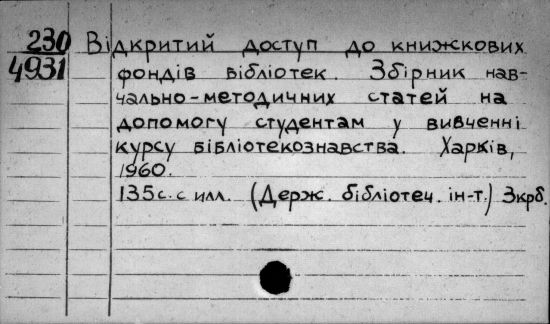 230 Відкритий доступ до книжскових
4931 фондів бібліотек. Збірник нав-
чально-методичних статей на
допомогу студентам у вивченні
курсу бібліотекознавства. Харків,
1960.
135с. с илл. (Держ. бібліотеч. ін-т.) 3крб.